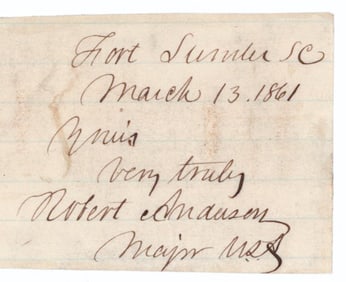 Fort Sumter SC
March 13. 1861
Yours
Very truly
Robert Anderson
Major U.S.A